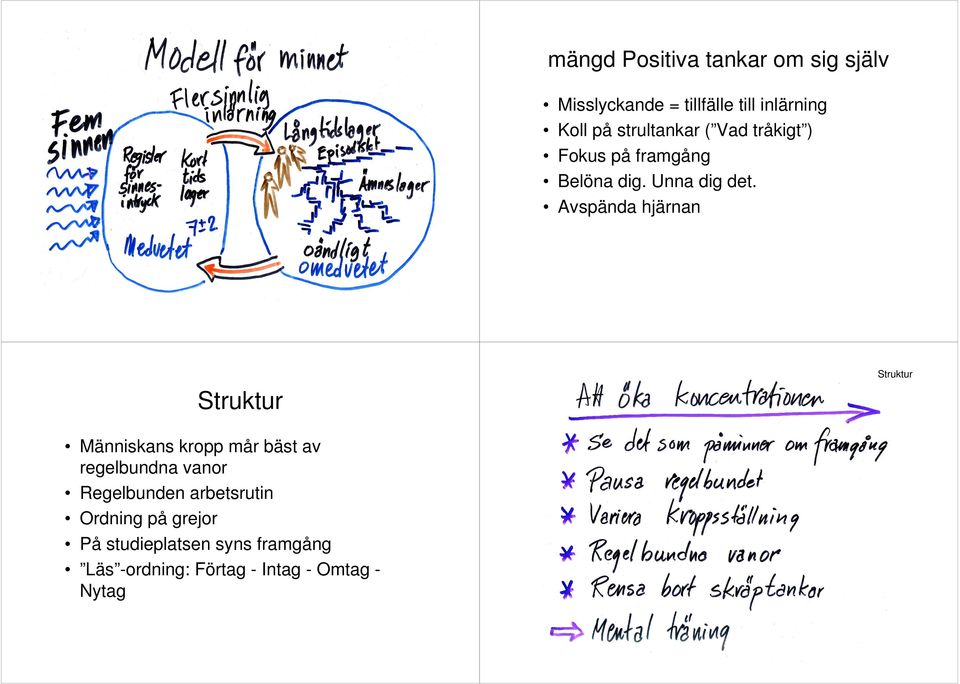 Modell för minnet
Flersinnlig
inlärning
Fem
sinnen
Register
för
sinnes-
intryck
Kort
tids
lager
7±2
Medvetet
Långtidslager
Episodiskt
Ämneslager
oändligt
omedvetet
mängd Positiva tankar om sig själv
• Misslyckande = tillfälle till inlärning
• Koll på strultankar ( Vad tråkigt )
• Fokus på framgång
• Belöna dig. Unna dig det.
• Avspända hjärnan
Struktur
• Människans kropp mår bäst av
regelbundna vanor
• Regelbunden arbetsrutin
• Ordning på grejor
• På studieplatsen syns framgång
• ”Läs -ordning: Förtag - Intag - Omtag -
Nytag
Struktur
Att öka koncentrationen
* Se det som påminner om framgång
* Pausa regelbundet
* Variera kroppsställning
* Regelbundna vanor
* Rensa bort skräptankar
⇒ Mental träning